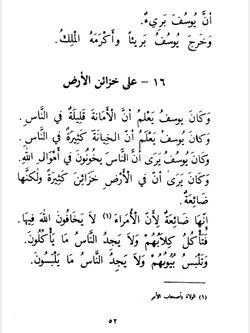 أَنَّ يُوسُفَ بَرِيءٌ.
وَخَرَجَ يُوسُفُ بَرِيئاً وَأَكْرَمَهُ الْمَلِكُ.
١٦ - على خزائن الأرض
وَكَانَ يوسفُ يَعْلَمُ أَنَّ الْأَمَانَةَ قَلِيلَةٌ فِي النَّاسِ.
وَكَانَ يُوسُفُ يَعْلَمُ أَنَّ الخِيَانَةَ كَثِيرَةٌ فِي النَّاسِ.
وَكَانَ يُوسُفُ يَرَى أَنَّ النَّاسَ يَخُونُونَ فِي أَمْوَالِ اللهِ.
وَكَانَ يَرَى أَنَّ فِي الْأَرْضِ خَزَائِنَ كَثِيرَةً وَلَكِنَّهَا
ضَائِعَةٌ.
إِنَّهَا ضَائِعَةٌ لِأَنَّ الْأُمَرَاءَ (١) لَا يَخَافُونَ اللهَ فِيهَا.
فَتَأْكُلُ كِلَابُهُمْ وَلَا يَجِدُ النَّاسُ مَا يَأْكُلُونَ.
وَتُلْبَسُ بُيُوتُهُمْ وَلَا يَجِدُ النَّاسُ مَا يَلْبَسُونَ.
(١) الولاة وأصحاب الأمر
٥٢